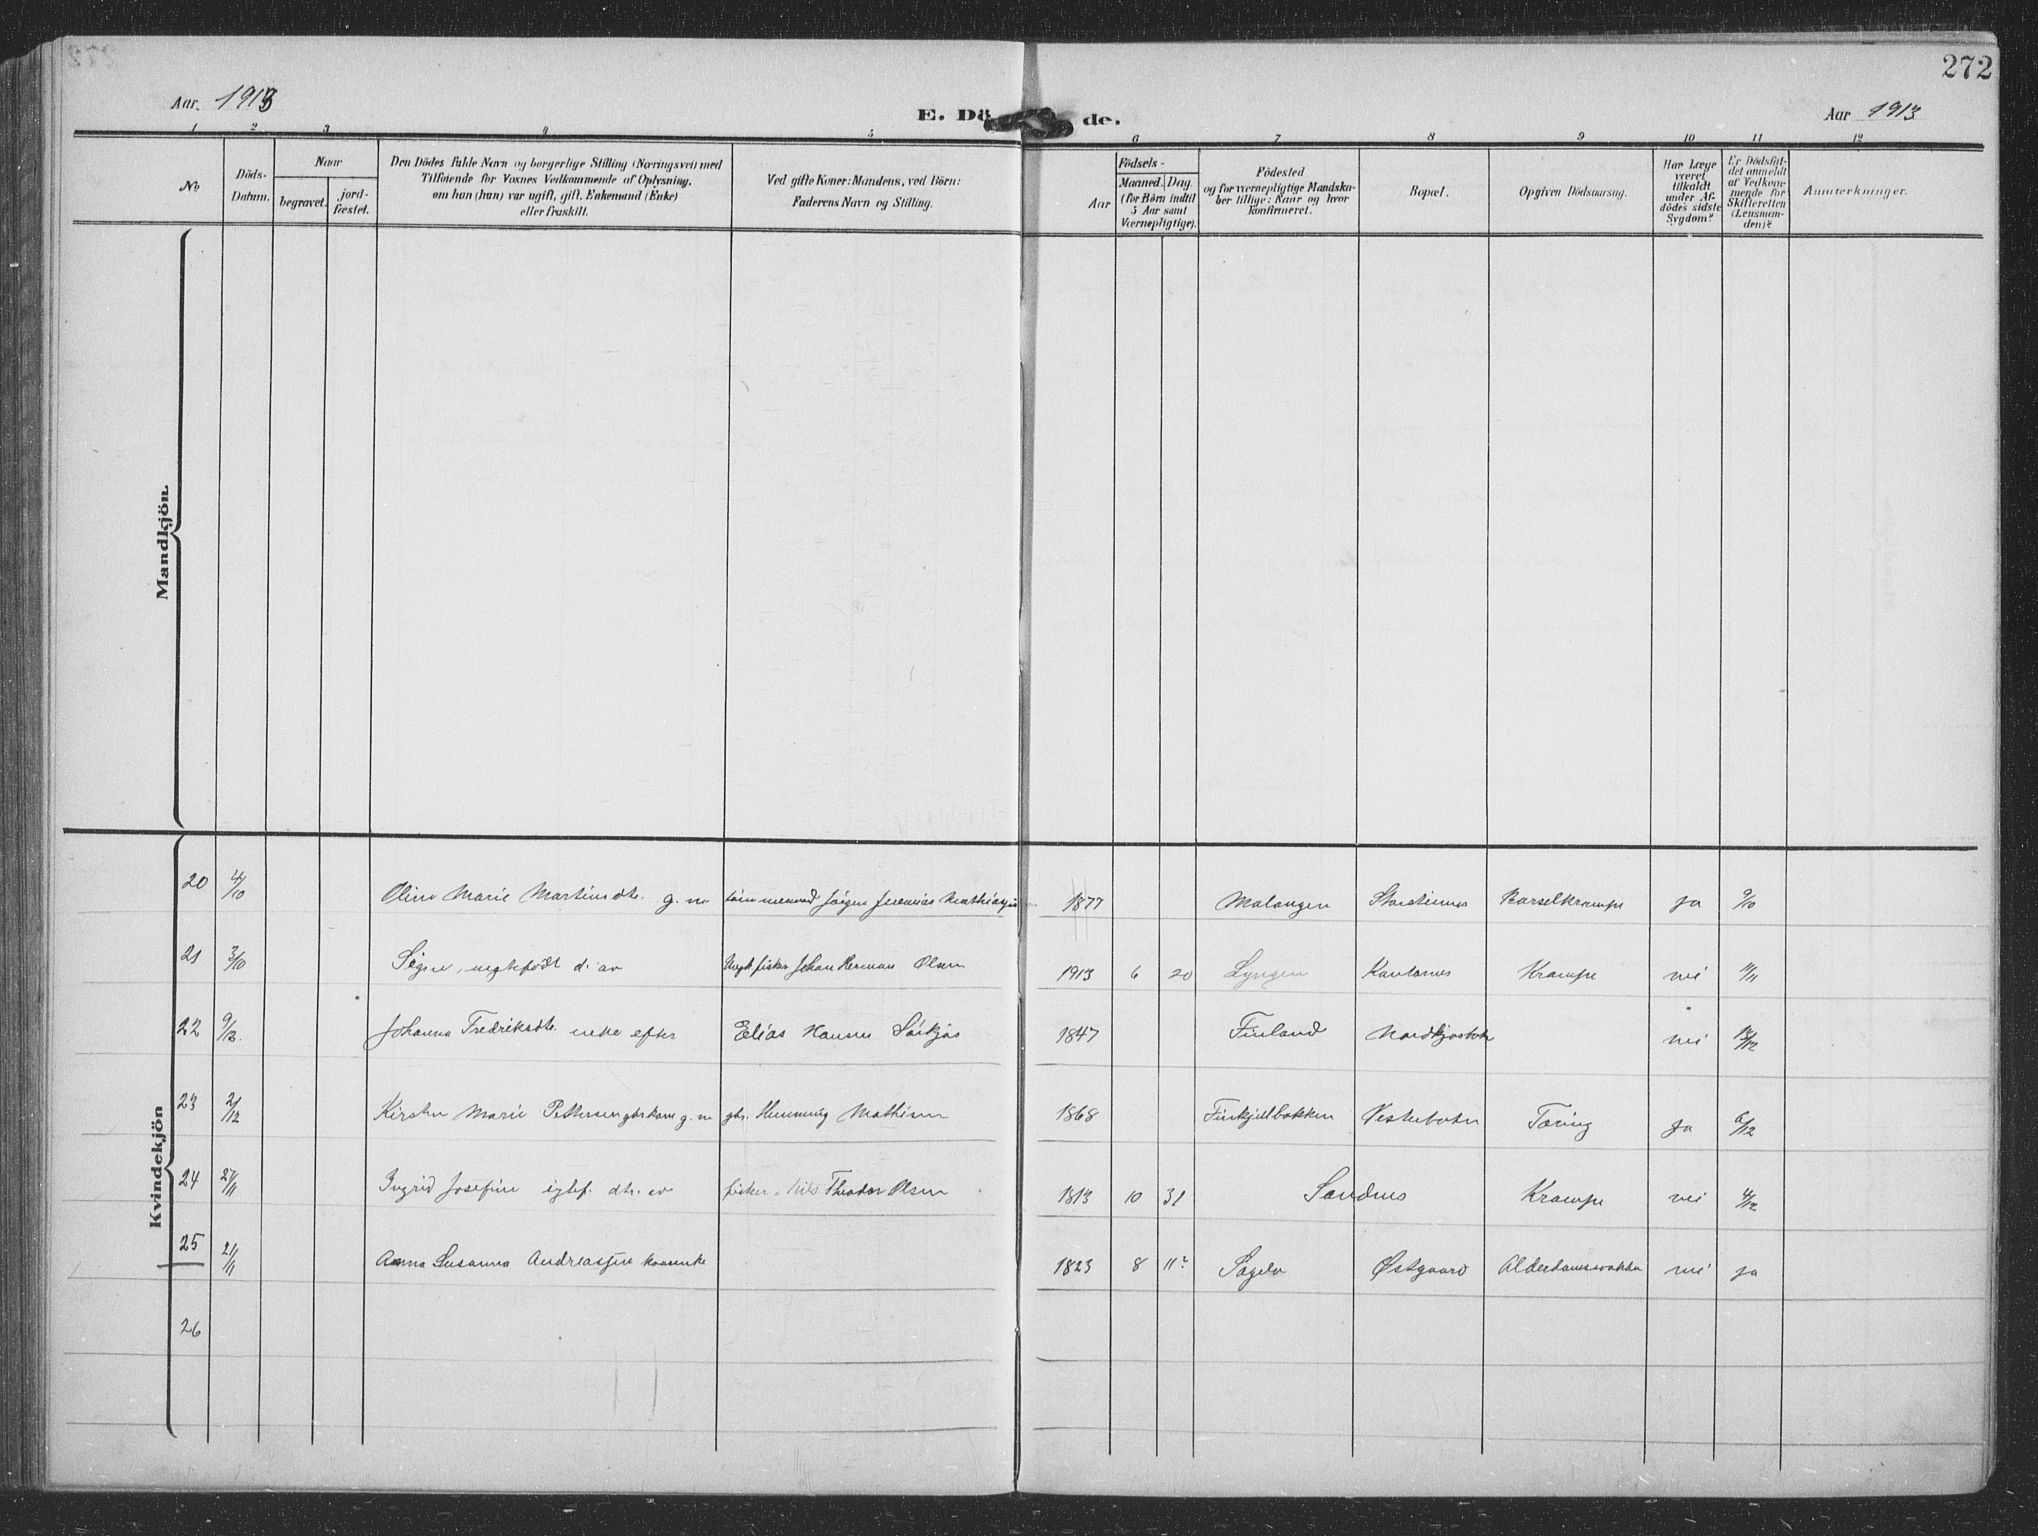 272
Aar 1913
E. Dö de.
Aar 1913
1 2 3 4 5 6 7 8 9 10 11 12
No
Döds-Datum.
Naar
begravet. jord-fæstet.
Den Dödes fulde Navn og borgerlige Stilling (Næringsvei) med
Tilföiende for Voxnes Vedkommende af Oplysning,
om han (hun) var ugift, gift, Enkemand (Enke)
eller fraskilt.
Ved gifte Koner: Mandens, ved Börn:
Faderens Navn og Stilling.
Aar
Födsels-
Maaned. Dag.
(for Börn indtil
5 Aar samt
Værnepligtige).
Födested
og for værnepligtige Mandska-
ber tillige: Naar og hvor
konfirmeret.
Bopæl.
Opgiven Dödsaarsag.
Har Læge
været
tilkaldt
under Af-
dödes sidste
Sygdom?
Er Dödsfal-
det anmeldt
af Vedkom-
mende for
Skifteretten
(Lensman-
den)?
Anmærkninger.
Mandkjön.
Kvindekjön
20 4/10 Oline Marie Martinsdtr. g. m. Jörgen Jeremias Mathiasen 1877 Malangen Storstennes Barselkrampe ja 9/10
21 3/10 Signe, uegtefödt d. av Ungk. fisker Johan Herman Olsen 1913 6 20 Lyngen Kantornes Krampe nei 11/11
22 9/12. Johanna Fredriksdtr. enke efter Elias Hansen Sörkjos 1847 Finland Nordkjosbotn nei 13/12
23 2/12 Kirsten Marie Pettersen gbr. kone g. m. gbr. Henning Mathisen 1868 Finkjellbakken Vesterbotn Tæring ja 6/12
24 27/11 Ingrid Josefine egtef. dtr. av fisker Nils Theodor Olsen 1813 10 31 Sandnes Krampe nei 4/12
25 21/11 Anna Susanna Andreassen kaarenke 1823 8 11? Sagelv Østgaard Alderdomssvakhet nei ja
26